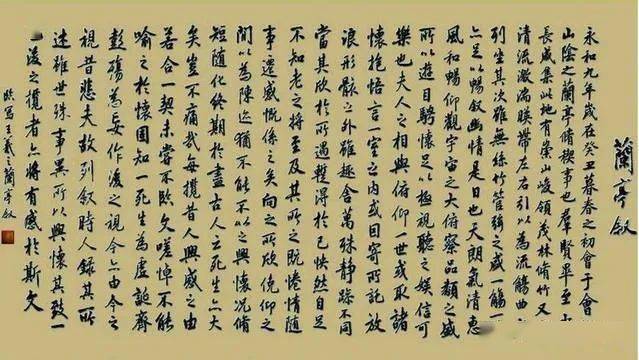 蘭亭叙
永和九年歲在癸丑暮春之初會于會
山陰之蘭亭脩稧事也群賢畢至少
長咸集此地有崇山峻領茂林脩竹又
清流激湍暎帶左右引以為流觴曲
列坐其次雖無絲竹管弦之盛一觴一
亦足以暢叙幽情是日也天朗氣清惠
風和暢仰觀宇宙之大俯察品類之盛
所以遊目騁懷足以極視聽之娛信可
樂也夫人之相與俯仰一世或取諸
懷抱悟言一室之內或因寄所託放
浪形骸之外雖趣舍萬殊靜躁不同
當其欣於所遇暫得於己怏然自足
不知老之將至及其所之既惓情隨
事遷感慨係之矣向之所欣俛仰之
間以為陳迹猶不能不以之興懷況脩
短隨化終期於盡古人云死生亦大
矣豈不痛哉每攬昔人興感之由
若合一契未嘗不臨文嗟悼不能
喻之於懷固知一死生為虛誕齊
彭殤為妄作後之視今亦由今之
視昔悲夫故列叙時人錄其所
述雖世殊事異所以興懷其致一
後之攬者亦將有感於斯文
臨寫王羲之蘭亭叙